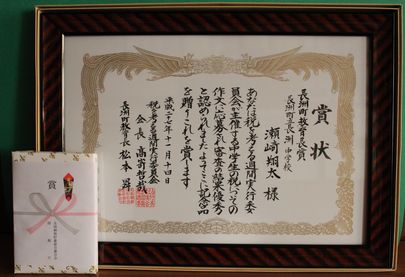 賞状
長洲町教育長賞
長洲町立長洲中学校
瀬崎翔太 様
あなたは税を考える週間実行委
員会が主催する中学生の税についての
作文に応募され審査の結果優秀
と認められましたよってここに記念品
を贈りこれを賞します
平成二十七年十一月十四日
税を考える週間実行委員会
会長 高寄哲哉
長洲町教育長 松本 昇
賞